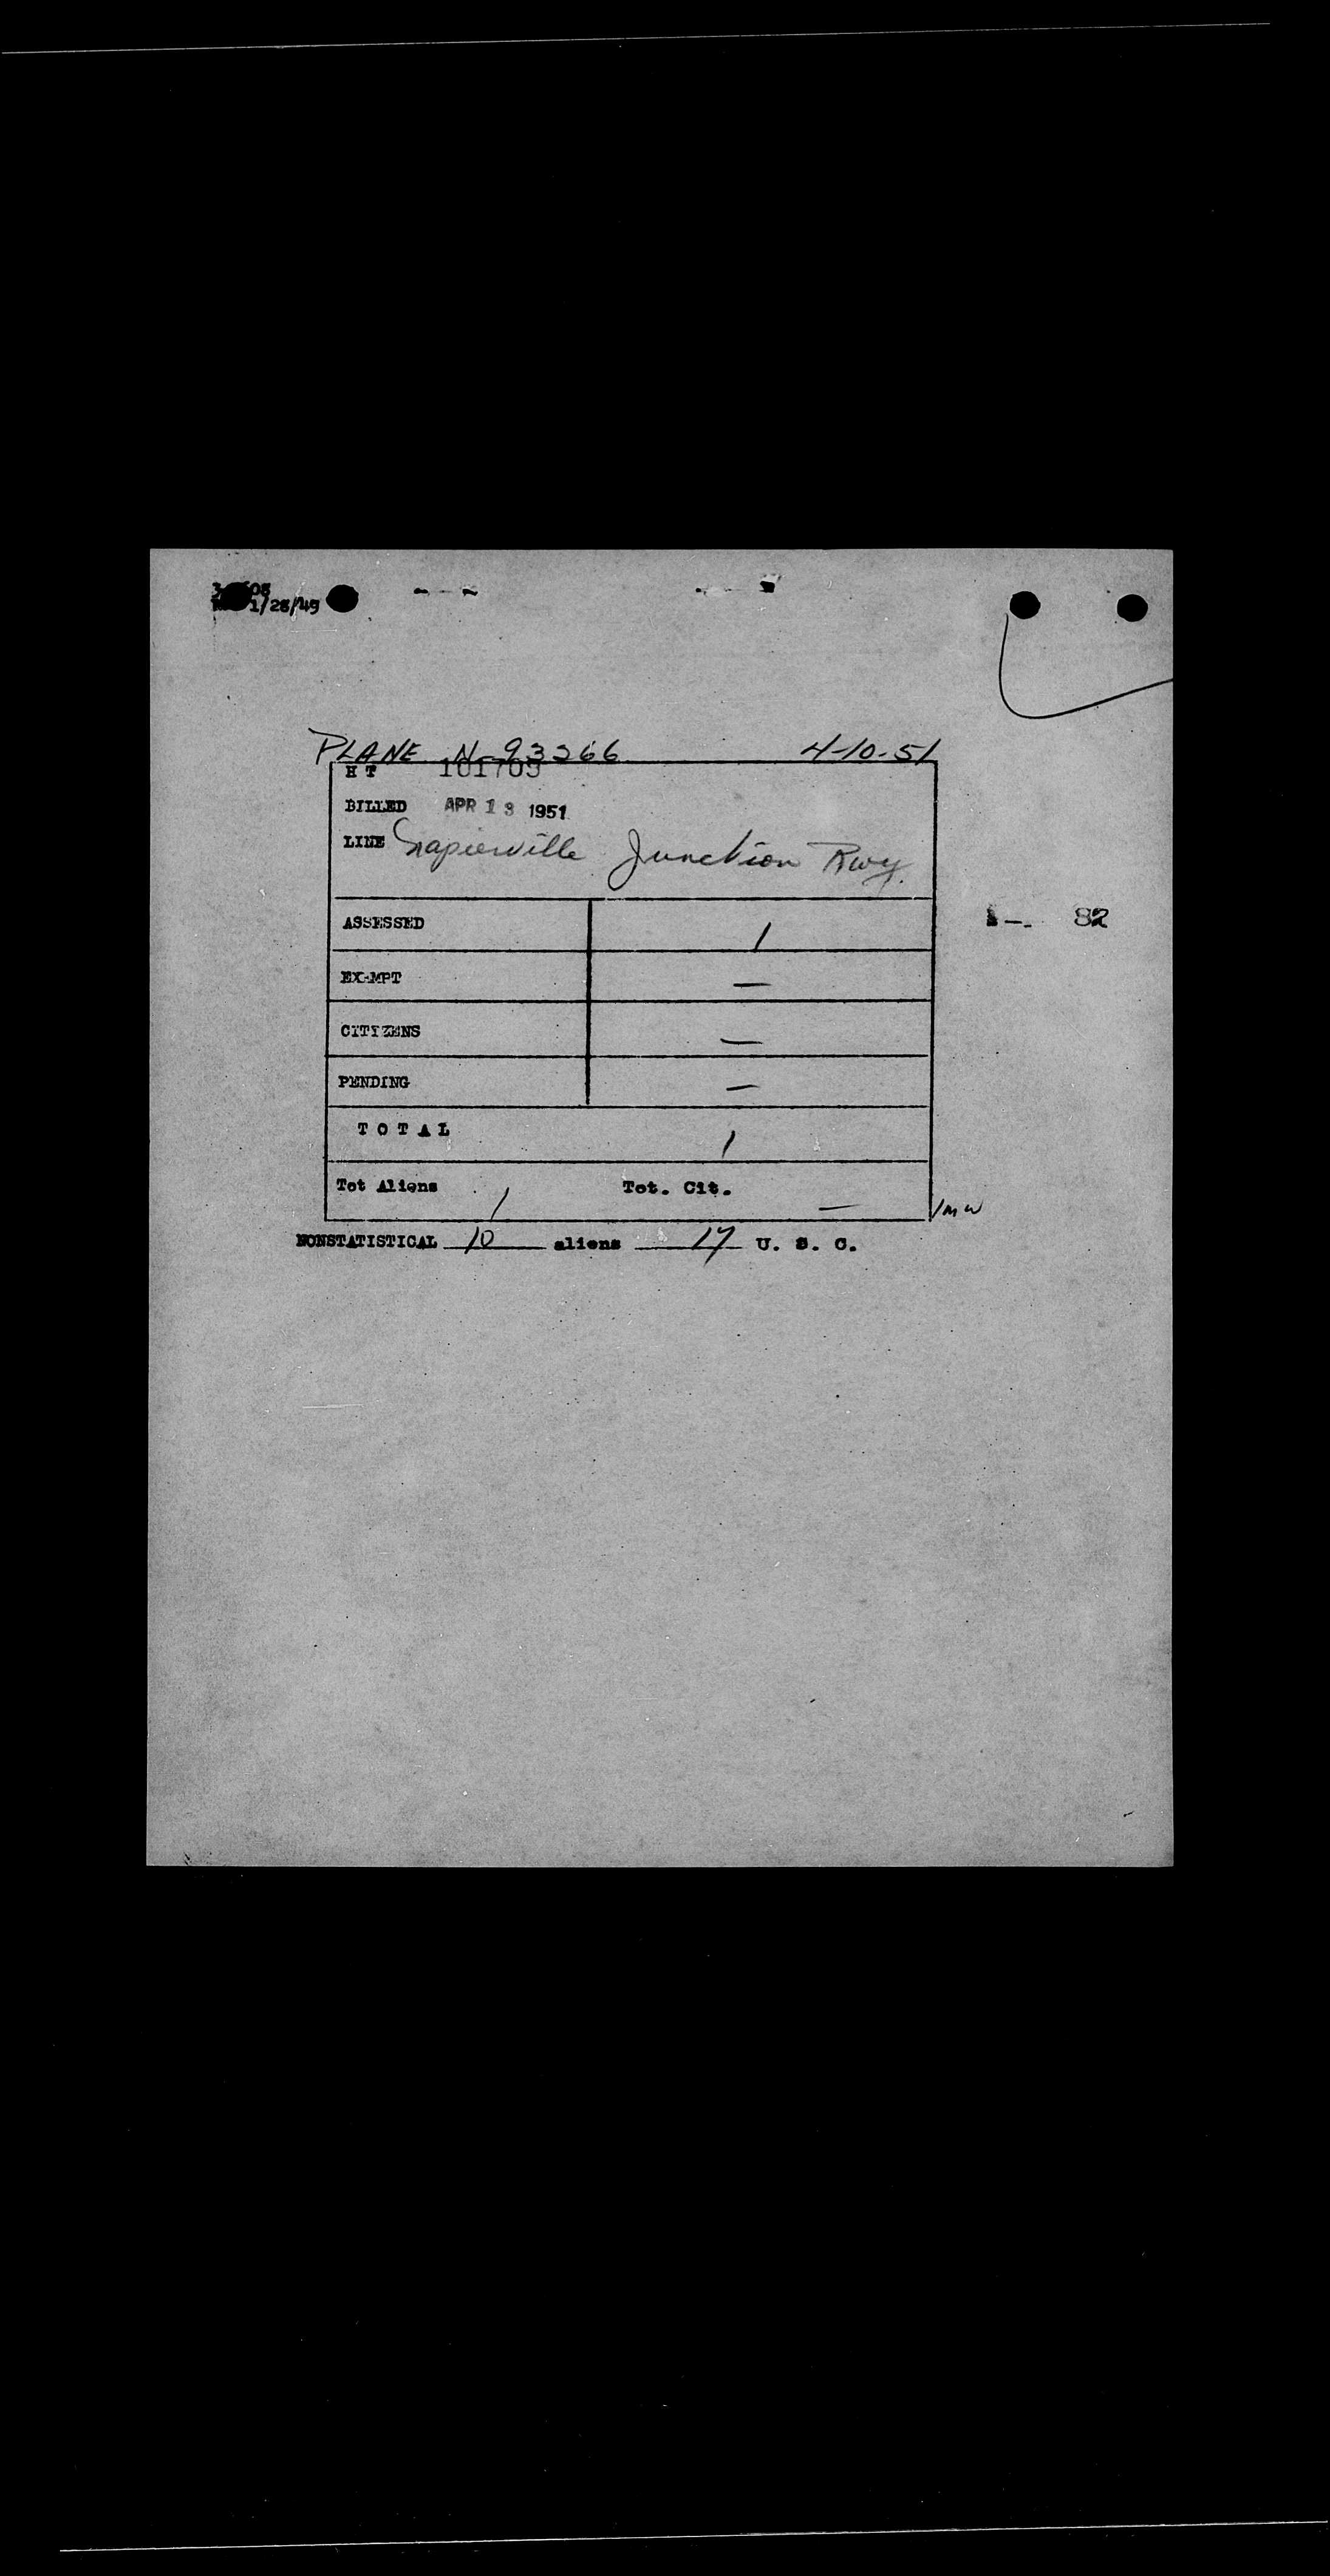 1/28/49
PLANE N-93266 4-10-51
HT 101709
BILLED APR 13 1951
LINE Napierville Junction Rwy.
ASSESSED 1
82
EXEMPT —
CITIZENS —
PENDING —
TOTAL 1
Tot Aliens 1 Tot. Cit. —
NONSTATISTICAL 10 aliens 17 U. S. C.